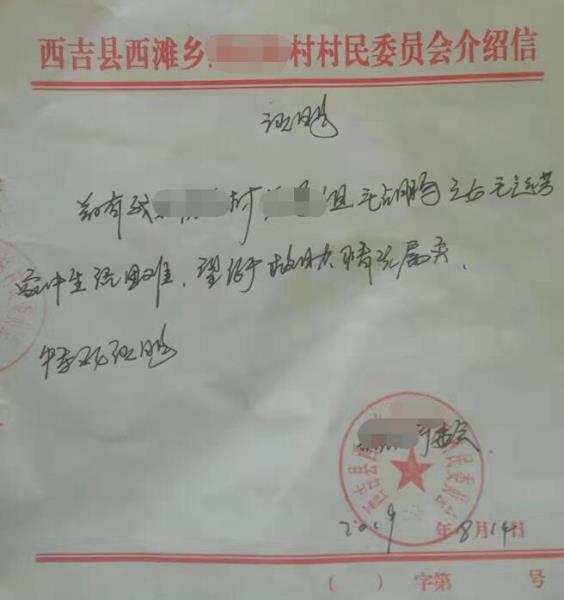 西吉县西滩乡 村村民委员会介绍信
证明
兹有我 村 组 之女
家中生活困难，望给于救助 情况属实
特此证明
村委会
2019年8月14日
（ ）字第 号